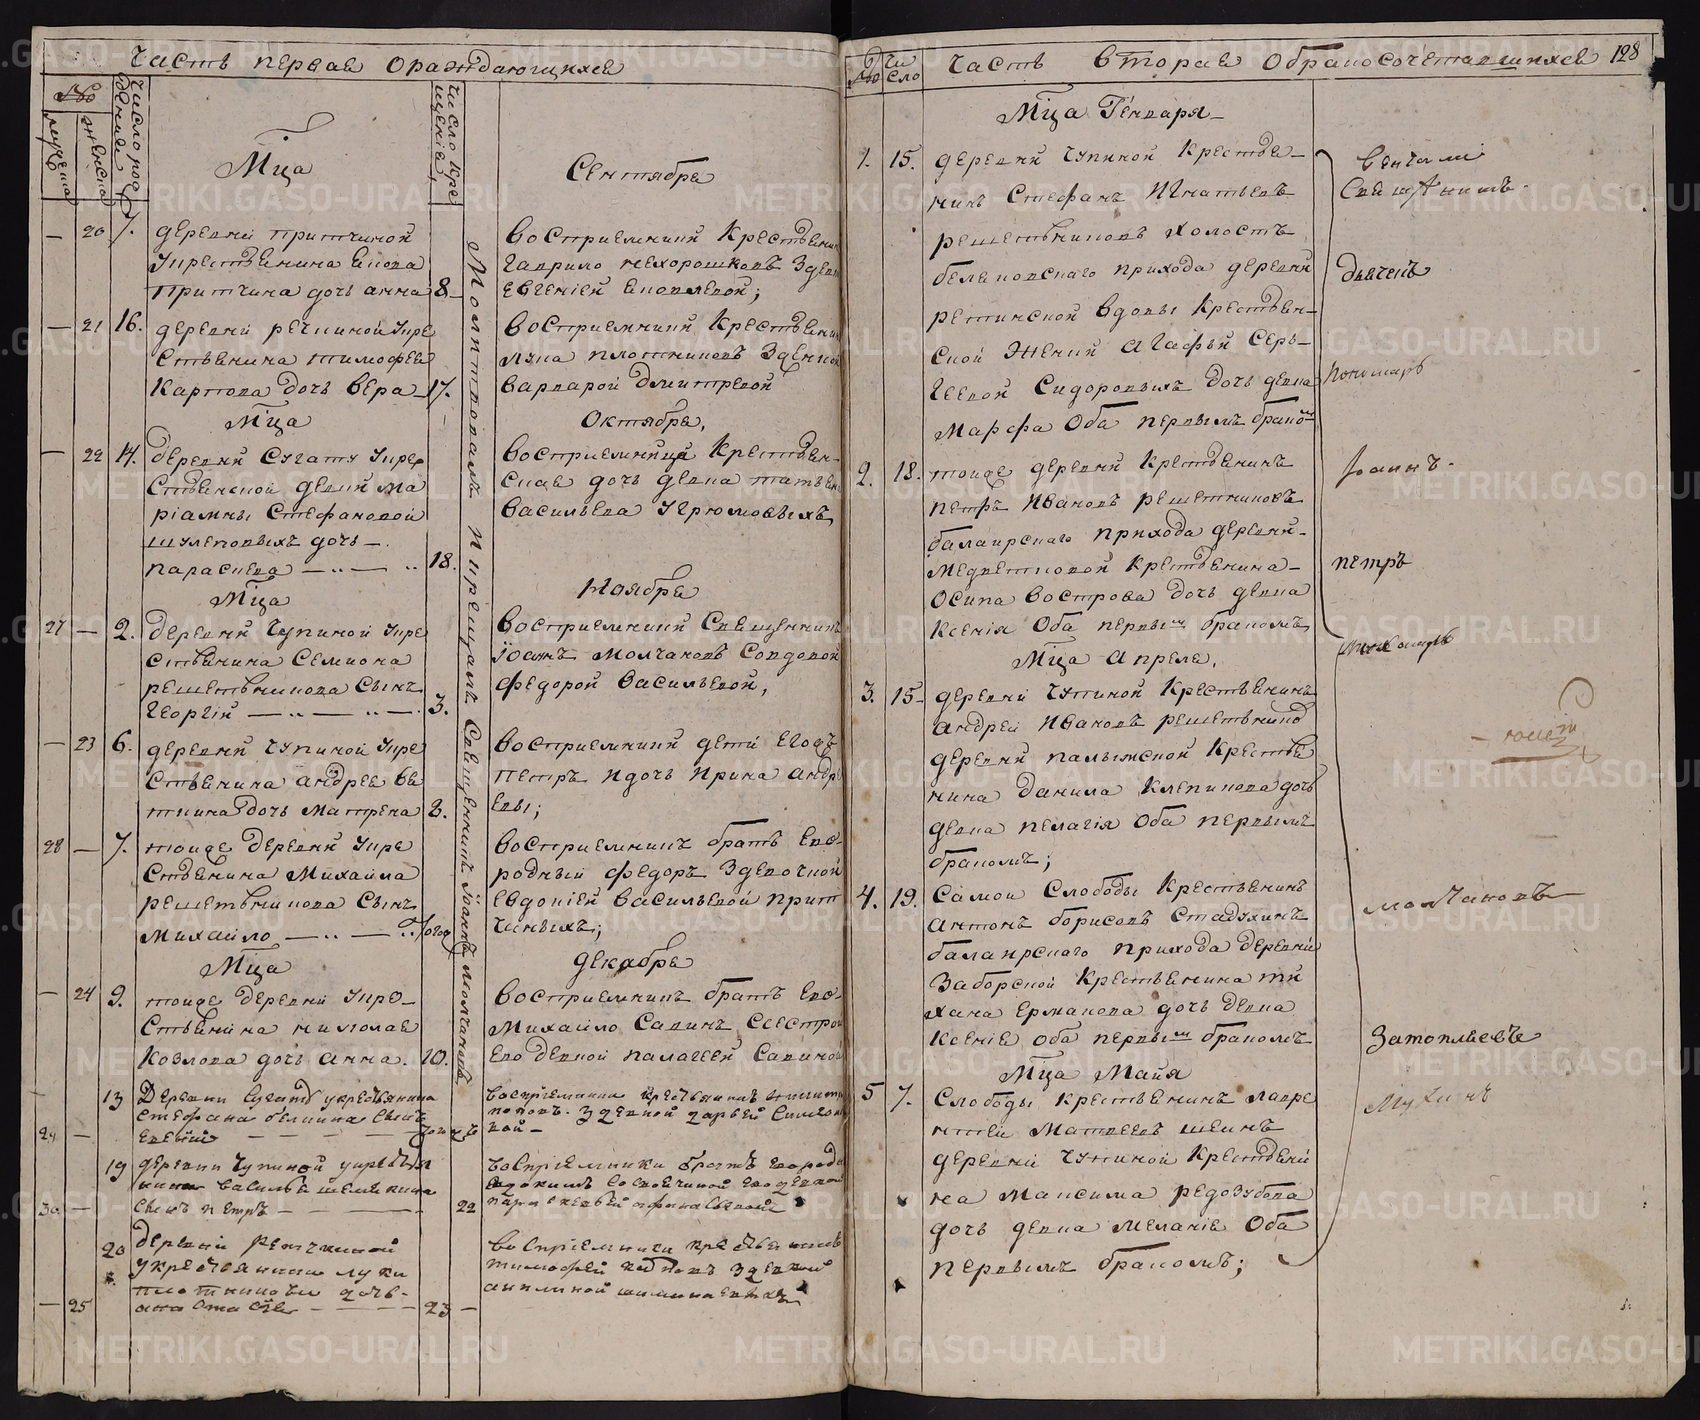 часть первая о раждающихся
№
мужеска
женска
число рождения
число крещения
Мца
Сентября
20
7.
деревни притчиной
у крестьянина Іакова
притчина дочь анна
8
восприемники крестьянин
гаврило нехорошковъ з девк
Евгеніей Іаковлевой;
21
16.
деревни речкиной у кре
стьянина тимофея
карпова дочь вера
17.
восприемники крестьянин
лука плотниковъ з женкой
варварой дмитревой
Мца
Октября,
22
14.
деревни Сугату у крес
стьянской девки ма
ріамны стефановой
шулеповыхъ дочь
параскева
18.
восприемница крестьян-
ская дочь девка татьян
васильева угрюмовыхъ
Мца
Ноября
27
2.
деревни чупиной у кре
стьянина семиона
решетникова сынъ
георгій
3.
восприемники священникъ
іоаннъ молчановъ со вдовой
федорой васильевой,
23
6.
деревни чупиной у кре
стьянина андрея бе
ткина дочь матрена
8.
восприемники дети егожъ
петръ и дочь ирина андр
евы;
28
7.
тоиже деревни у кре
стьянина михаила
решетникова сынъ
михаило
восприемникъ братъ ево
родный федоръ з девочкой
евдокіей васильевой прит
чиныхъ;
Мца
декабря
24
9.
тоиже деревни у кре-
стьянина николая
козлова дочь анна.
10.
восприемникъ братъ ево
михаило савинъ с сестрой
ево девкой палагеей савиной
13
Деревни Сугату у крестьянина
стефана белкина сынъ
Евсѣй
29
30
19
деревни чупиной у крестья
нина василья шемякина
сынъ петръ
22
восприемники братъ
20
деревни речкиной
у крестьянина луки
плотникова дочь
анастасія
25
23
восприемники крестьянинъ
тимофей карповъ з девкой
Молитвовалъ и крещалъ священникъ іоаннъ молчановъ
№
число
часть вторая о бракосочетавшихся
128
Мца Генваря
1.
15.
деревни чупиной крестья-
нинъ стефанъ Игнатьевъ
решетниковъ холостъ
беляковскаго прихода деревни
речкинской вдовы крестьян-
ской женки агафьи серь-
геевой сидоровыхъ дочь девка
марфа оба первымъ бракомъ
2.
18.
тоиже деревни крестьянинъ
петръ ивановъ решетниковъ
балаирскаго прихода деревни
медветковой крестьянина
осипа вострова дочь девка
ксенія оба первым бракомъ
Мца апреля,
3.
15
деревни чупиной крестьянинъ
андрей ивановъ решетников
деревни палыжской крестья
нина данила клепикова дочь
девка пелагія оба первымъ
бракомъ;
4.
19.
самой слободы крестьянинъ
антонъ борисовъ стадухинъ
балаирскаго прихода деревни
заборской крестьянина ти
хана ермакова дочь девка
ксенія оба первым бракомъ
Мца Майя
5
7.
слободы крестьянинъ лавре
нтей матвеевъ шеинъ
деревни чупиной крестьяни
на максима редозубова
дочь девка меланія оба
первымъ бракомъ;
венчали
священникъ
дьячекъ
пономарь
Іоаннъ.
петръ
молчановъ
Затопляевъ
Мухинъ